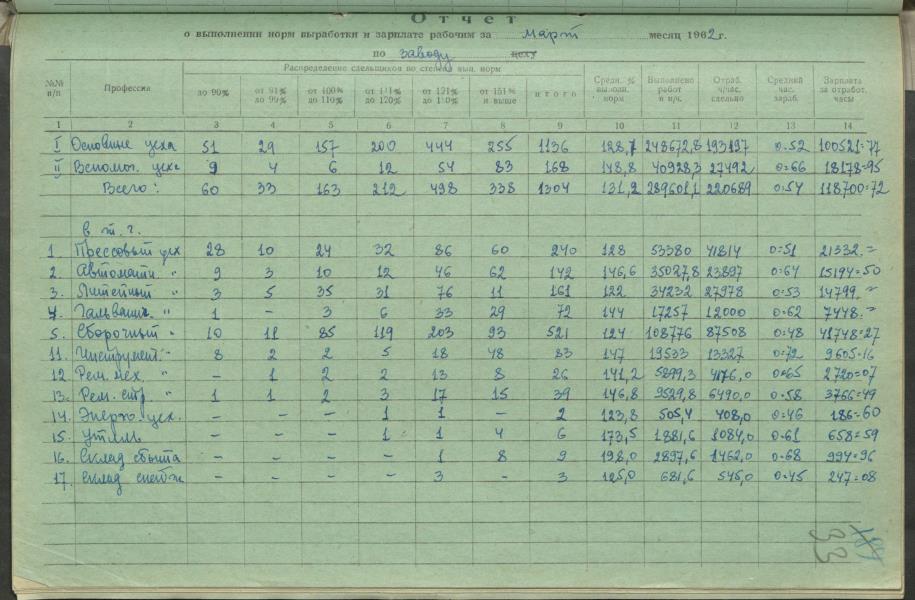 Отчет
о выполнении норм выработки и зарплате рабочим за март месяц 1962г.
по заводу цеху
№№ п/п Профессия Распределение сдельщиков по степени вып. норм Средн. % выполн. норм Выполнено работ в н/ч. Отраб. ч/час. сдельно Средний час. зараб. Зарплата за отработ. часы
до 90% от 91% до 99% от 100% до 110% от 111% до 120% от 121% до 150% от 151% и выше итого
1 2 3 4 5 6 7 8 9 10 11 12 13 14
I Основные цеха 51 29 157 200 444 255 1136 128,7 248672,8 193197 0=52 100521=77
II Вспомог. цеха 9 4 6 12 54 83 168 148,8 40928,3 27492 0=66 18178=95
Всего: 60 33 163 212 498 338 1304 131,2 289601,1 220689 0=54 118700=72
в т. ч.
1. Прессовый цех 28 10 24 32 86 60 240 128 53380 41814 0=51 21332.=
2. Автоматн. " 9 3 10 12 46 62 142 146,6 35027,8 23897 0=64 15194=50
3. Литейный " 3 5 35 31 76 11 161 122 34232 27978 0=53 14799.=
4. Гальванич. " 1 - 3 6 33 29 72 144 17257 12000 0=62 7448.=
5. Сборочный " 10 11 85 119 203 93 521 124 108776 87508 0=48 41748=27
11. Инструмент. " 8 2 2 5 18 48 83 147 19533 13327 0=72 9605=16
12. Рем. мех. " - 1 2 2 13 8 26 141,2 5899,3 4176,0 0=65 2720=07
13. Рем. стр. " 1 1 2 3 17 15 39 146,8 9529,8 6490,0 0=58 3766=49
14. Энерго. цех. - - - 1 1 - 2 123,8 505,4 408,0 0=46 186=60
15. Утиль - - - 1 1 4 6 173,5 1881,6 1084,0 0=61 658=59
16. Склад сбыта - - - - 1 8 9 198,0 2897,6 1462,0 0=68 994=96
17. Склад - - - - 3 - 3 125,0 681,6 545,0 0=45 247=08
33